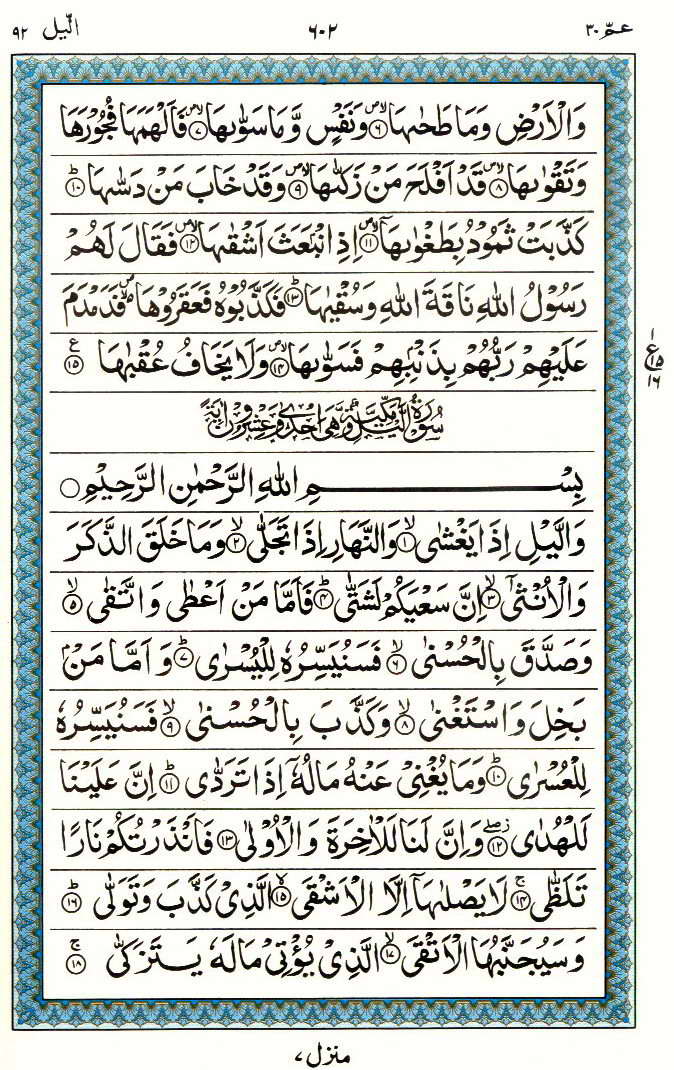 عمّ ٣٠ ٦٠٢ الّيل ٩٢
وَالْاَرْضِ وَمَا طَحٰىهَا ۪ۙ﴿۶﴾ وَنَفْسٍ وَّمَا سَوّٰىهَا ۪ۙ﴿۷﴾ فَاَلْهَمَهَا فُجُوْرَهَا
وَتَقْوٰىهَا ۪ۙ﴿۸﴾ قَدْ اَفْلَحَ مَنْ زَكّٰىهَا ۪ۙ﴿۹﴾ وَقَدْ خَابَ مَنْ دَسّٰىهَا ؕ﴿۱۰﴾
كَذَّبَتْ ثَمُوْدُ بِطَغْوٰىهَاۤ ۪ۙ﴿۱۱﴾ اِذِ انْۢبَعَثَ اَشْقٰىهَا ۪ۙ﴿۱۲﴾ فَقَالَ لَهُمْ
رَسُوْلُ اللهِ نَاقَةَ اللهِ وَسُقْيٰهَا ؕ﴿۱۳﴾ فَكَذَّبُوْهُ فَعَقَرُوْهَا ۪ۙ فَدَمْدَمَ
عَلَيْهِمْ رَبُّهُمْ بِذَنْۢبِهِمْ فَسَوّٰىهَا ۪ۙ﴿۱۴﴾ وَلَا يَخَافُ عُقْبٰهَا ﴿۱۵﴾ ع
١
ع ١٥
١٦
سُوْرَةُ الَّيْلِ مَكِّيَّةٌ وَّهِىَ اِحْدٰى وَّعِشْرُوْنَ اٰيَةً
بِسْمِ اللهِ الرَّحْمٰنِ الرَّحِيْمِ
وَالَّيْلِ اِذَا يَغْشٰى ۙ﴿۱﴾ وَالنَّهَارِ اِذَا تَجَلّٰى ۙ﴿۲﴾ وَمَا خَلَقَ الذَّكَرَ
وَالْاُنْثٰىۤ ۙ﴿۳﴾ اِنَّ سَعْيَكُمْ لَشَتّٰى ؕ﴿۴﴾ فَاَمَّا مَنْ اَعْطٰى وَاتَّقٰى ۙ﴿۵﴾
وَصَدَّقَ بِالْحُسْنٰى ۙ﴿۶﴾ فَسَنُيَسِّرُهٗ لِلْيُسْرٰى ؕ﴿۷﴾ وَاَمَّا مَنْۢ
بَخِلَ وَاسْتَغْنٰى ۙ﴿۸﴾ وَكَذَّبَ بِالْحُسْنٰى ۙ﴿۹﴾ فَسَنُيَسِّرُهٗ
لِلْعُسْرٰى ؕ﴿۱۰﴾ وَمَا يُغْنِىْ عَنْهُ مَالُهٗۤ اِذَا تَرَدّٰى ؕ﴿۱۱﴾ اِنَّ عَلَيْنَا
لَلْهُدٰى ۫ۖ﴿۱۲﴾ وَاِنَّ لَنَا لَلْاٰخِرَةَ وَالْاُوْلٰى ﴿۱۳﴾ فَاَنْذَرْتُكُمْ نَارًا
تَلَظّٰى ۚ﴿۱۴﴾ لَا يَصْلٰىهَاۤ اِلَّا الْاَشْقَى ۙ﴿۱۵﴾ الَّذِىْ كَذَّبَ وَتَوَلّٰى ؕ﴿۱۶﴾
وَسَيُجَنَّبُهَا الْاَتْقَى ۙ﴿۱۷﴾ الَّذِىْ يُؤْتِىْ مَالَهٗ يَتَزَكّٰى ۚ﴿۱۸﴾
منزل ٧